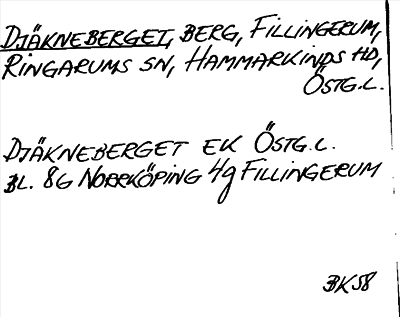 DJÄKNEBERGET, BERG, FILLINGERUM,
RINGARUMS SN, HAMMARKINDS HD,
ÖSTG.L.
DJÄKNEBERGET EK ÖSTG.L.
BL. 8G NORRKÖPING 4g FILLINGERUM
BK58